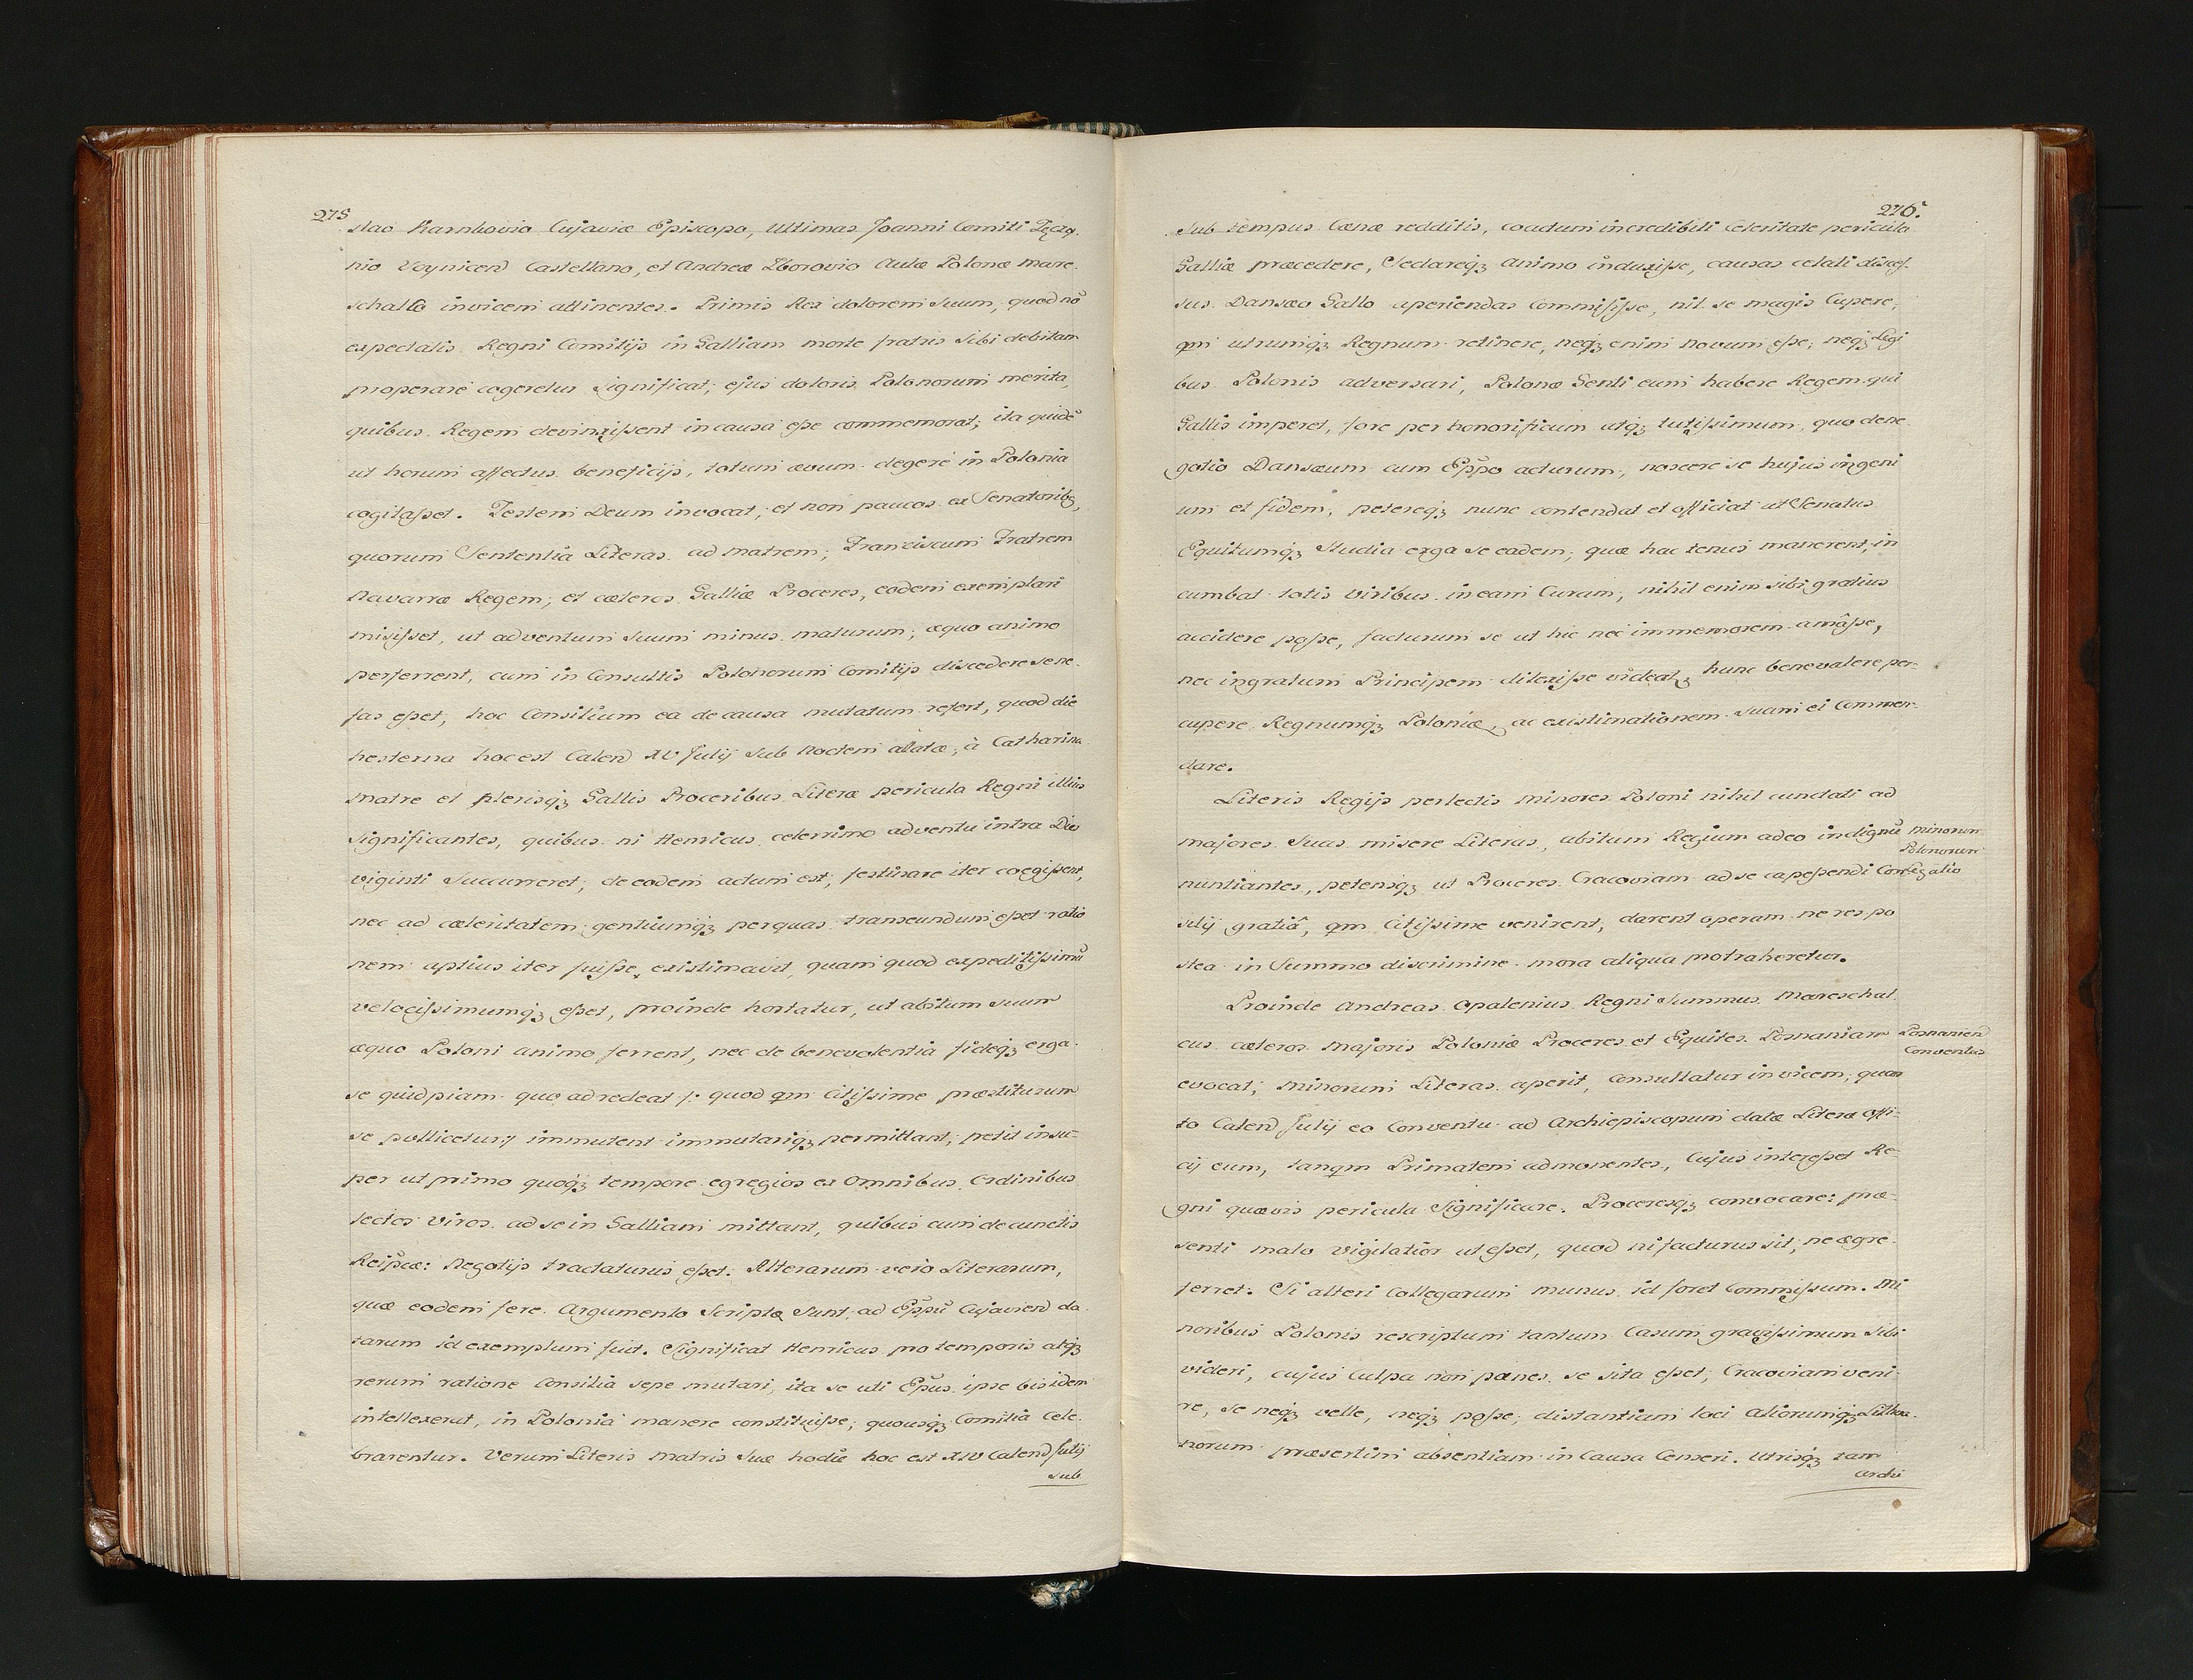 275
slao Karnkovio Cujaviæ Episcopo, Ultimas Joanni Comiti Tęczy-
nio Voynicen Castellano, et Andreæ Zborovio Aulæ Polonæ Mare-
schallo invicem attinentes. Primis Rex dolorem suum, quod nō
expectatis Regni Comitijs in Galliam morte fratris sibi debitam
properare cogeretur significat; ejus doloris Polonorum merita,
quibus Regem devinxissent in causa esse commemorat; ita quidē
ut horum affectus beneficijs, totum ævum degere in Polonia
cogitasset. Testem Deum invocat, et non paucos ex Senatoribꝫ,
quorum Sententia Literas ad matrem; Franciscum Fratrem
Navarræ Regem; et cæteros Galliæ Proceres, eodem exemplari
misisset, ut adventum suum minus maturum; æquo animo
perferrent, cum in Consultis Polonorum Comitijs discedere se ne-
fas esset, hoc Consilium ea de causa mutatum refert, quod die
hesterna hoc est Calend XV Julij sub Noctem allatæ, à Catharina
Matre et plerisqꝫ Gallis Proceribus Literæ pericula Regni illius
significantes, quibus ni Henricus celerrimo adventu intra Dies
viginti succurreret; de eodem actum est; festinare iter coegissent,
nec ad cæleritatem gentiumqꝫ per quas transeundum esset ratio-
nem aptius iter fuisse, existimavit, quam quod expeditissimū
velocissimumqꝫ esset, proinde hortatur, ut abitum suum
æquo Poloni animo ferrent, nec de benevolentia fideqꝫ erga
se quidpiam quo ad redeat /: quod qm citissime præstiturum
se pollicetur:/ immutent immutariqꝫ permittant; petit insu-
per ut primo quoqꝫ tempore egregios ex Omnibus Ordinibus
lectos viros ad se in Galliam mittant, quibus cum de cunctis
Reipcæ: Negotijs tractaturus esset. Alterarum vero Literarum,
quæ eodem fere Argumento Scriptæ Sunt, ad Eppū Cujavien da-
tarum id exemplum fuit. Significat Henricus pro temporis atqꝫ
rerum ratione Consilia sepe mutari, ita se uti Epus ipse bis idem
intellexerat, in Polonia manere constituisse; quousqꝫ Comitia Cele-
brarentur. Verum Literis Matris Suæ hodie hoc est XIV Calend Julij
sub
276.
Sub tempus Cænæ redditis, coactum incredibili Celeritate pericula
Galliæ præcedere, Sedareqꝫ animo induxisse, causas celati disces-
sus Dansæo Gallo aperiendas Commisisse, nil se magis Cupere,
qm utrumqꝫ Regnum retinere, neqꝫ enim novum esse; neqꝫ Legi
bus Polonis adversari, Polonæ Genti eum habere Regem qui
Gallis imperet, fore per honorificum utqꝫ tutissimum, quo de ne
gotio Dansæum cum Eppo acturum, noscere se hujus ingeni
um et fidem, petereqꝫ nunc contendat et efficiat ut Senatus
Equitumqꝫ Studia erga se eadem, quæ hac tenus manerent, in
cumbat totis viribus in eam Curam, nihil enim sibi gratius
accidere posse, facturum se ut hic nec immemorem amâsse,
nec ingratum Principem dilexisse videatꝫ hunc bene valere per-
cupere Regnumqꝫ Poloniæ, ac existimationem suam ei Commen-
dare.
Literis Regijs perlectis minores Poloni nihil cunctati ad
majores Suas misere Literas, abitum Regium adeo indignū
Minorum
Polonorum
Legatio
nuntiantes, petensqꝫ ut Proceres Cracoviam ad se capessendi Con-
silij gratiâ, qm Citissime venirent, darent operam ne res po
stea in Summo discrimine mora aliqua protraheretur.
Proinde Andreas Opalenius Regni Summus Mareschal
cus cæteros Majoris Poloniæ Proceres et Equites Posnaniam
Posnanien
Conventus
evocat; Minorum Literas aperit, Consultatur invicem; quar
to Calend Julij eo Conventu ad Archiepiscopum datæ Literæ offi-
cij eum, tanqm Primatem admonentes, Cujus interesset Re-
gni quævis pericula Significare, Proceresqꝫ convocare: præ-
senti malo vigilatior ut esset, quod ni facturus sit, ne ægre
ferret: Si alteri Collegarum munus id foret Commissum. Mi
noribus Polonis rescriptum tantum Casum gravissimum Sibi
videri, cujus Culpa non pænes se sita esset, Cracoviam veni-
re, se neqꝫ velle, neqꝫ posse; distantiam loci aliorumqꝫ Lithva-
norum præsertim absentiam in Causa Censeri. Utrisqꝫ tam
Archi